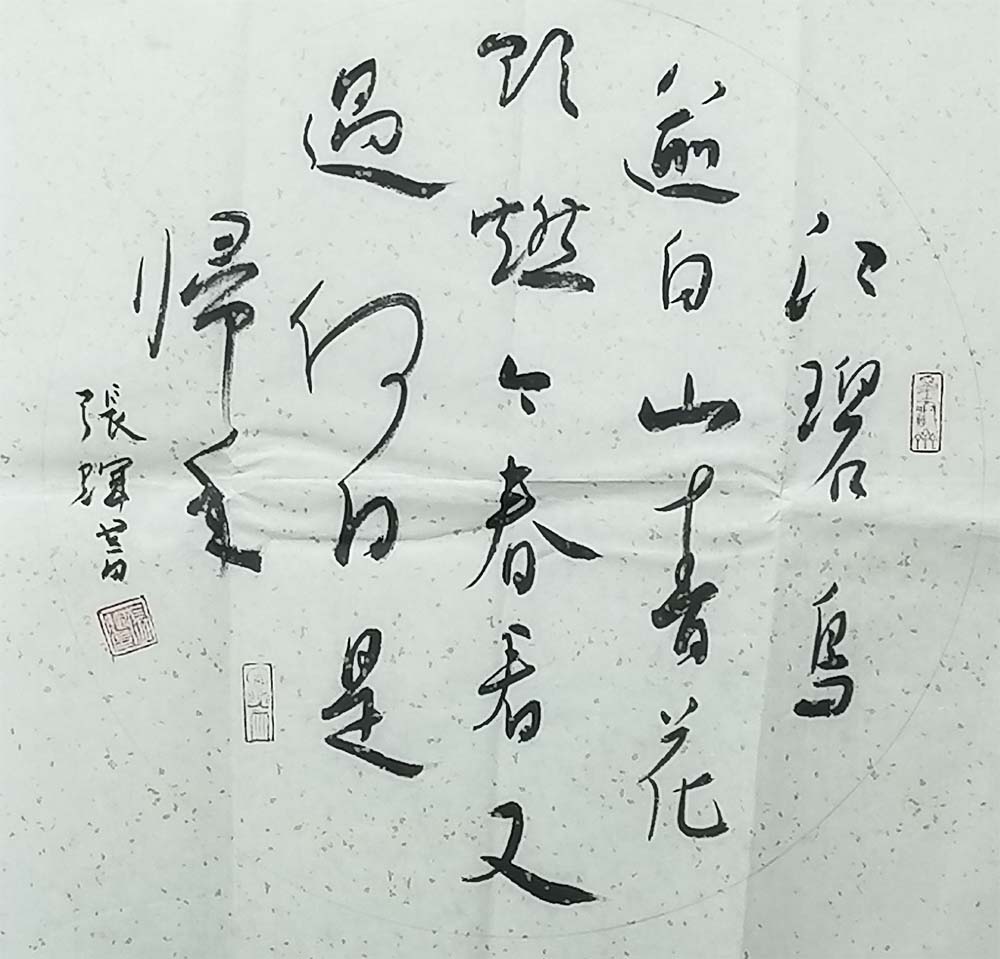 江碧鳥
逾白山青花
欲燃今春看又
過何日是
歸年
張輝